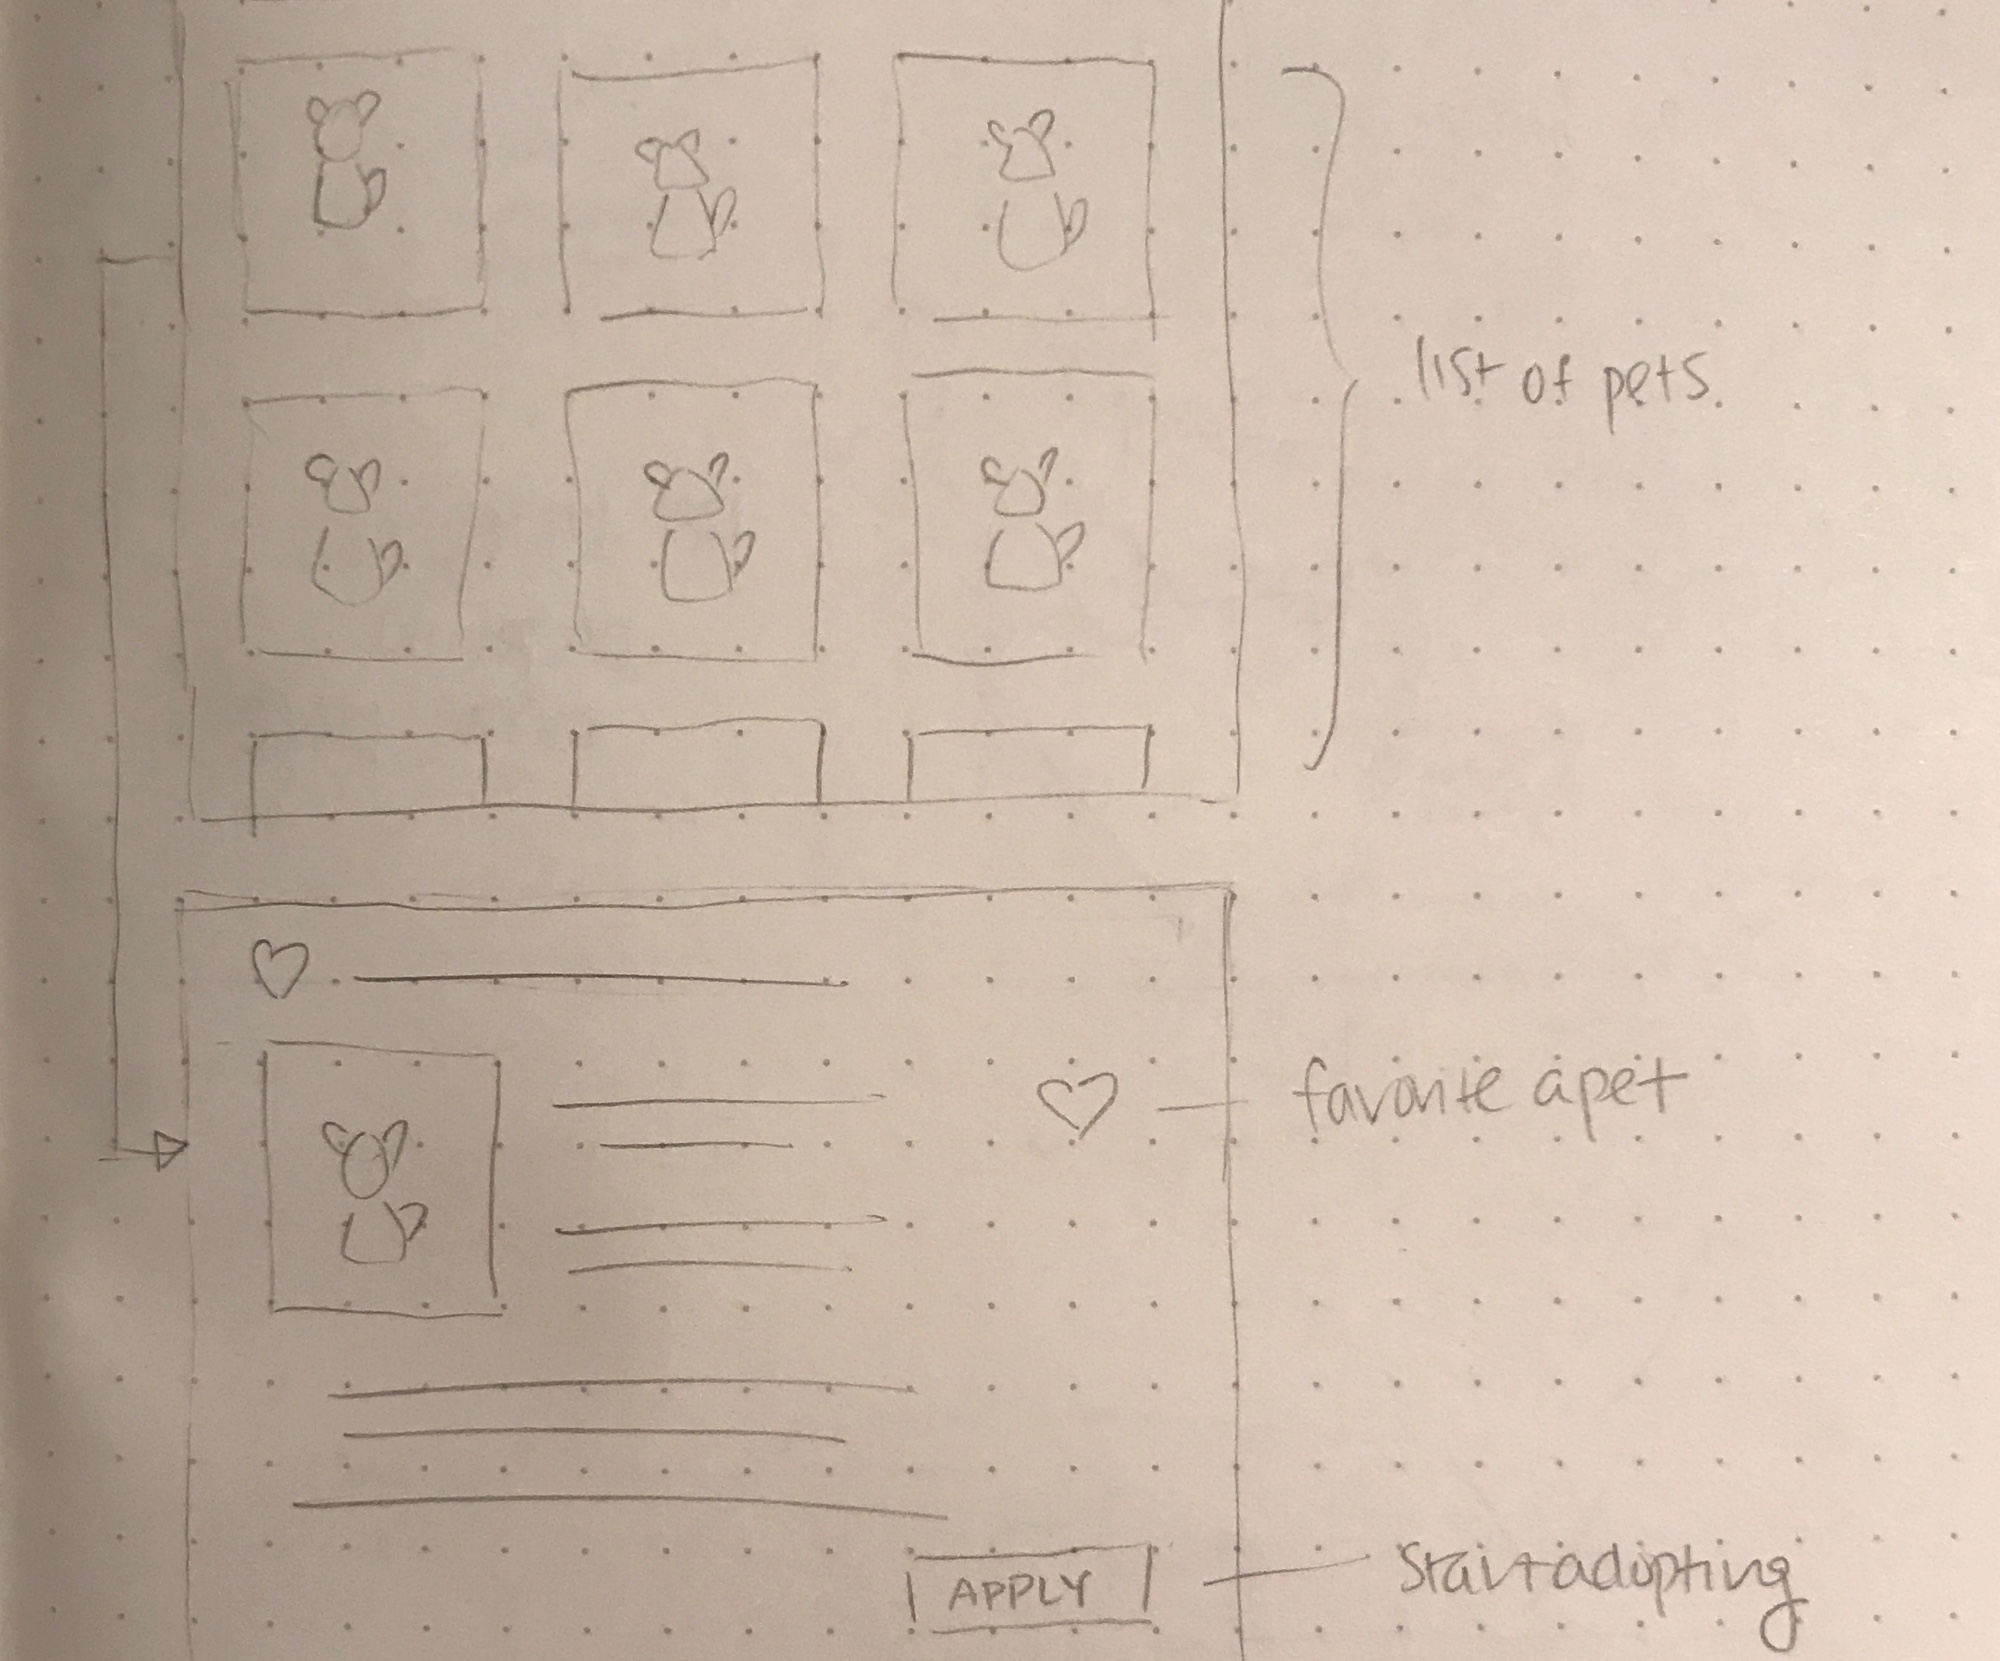 list of pets
favorite a pet
APPLY
Start adopting